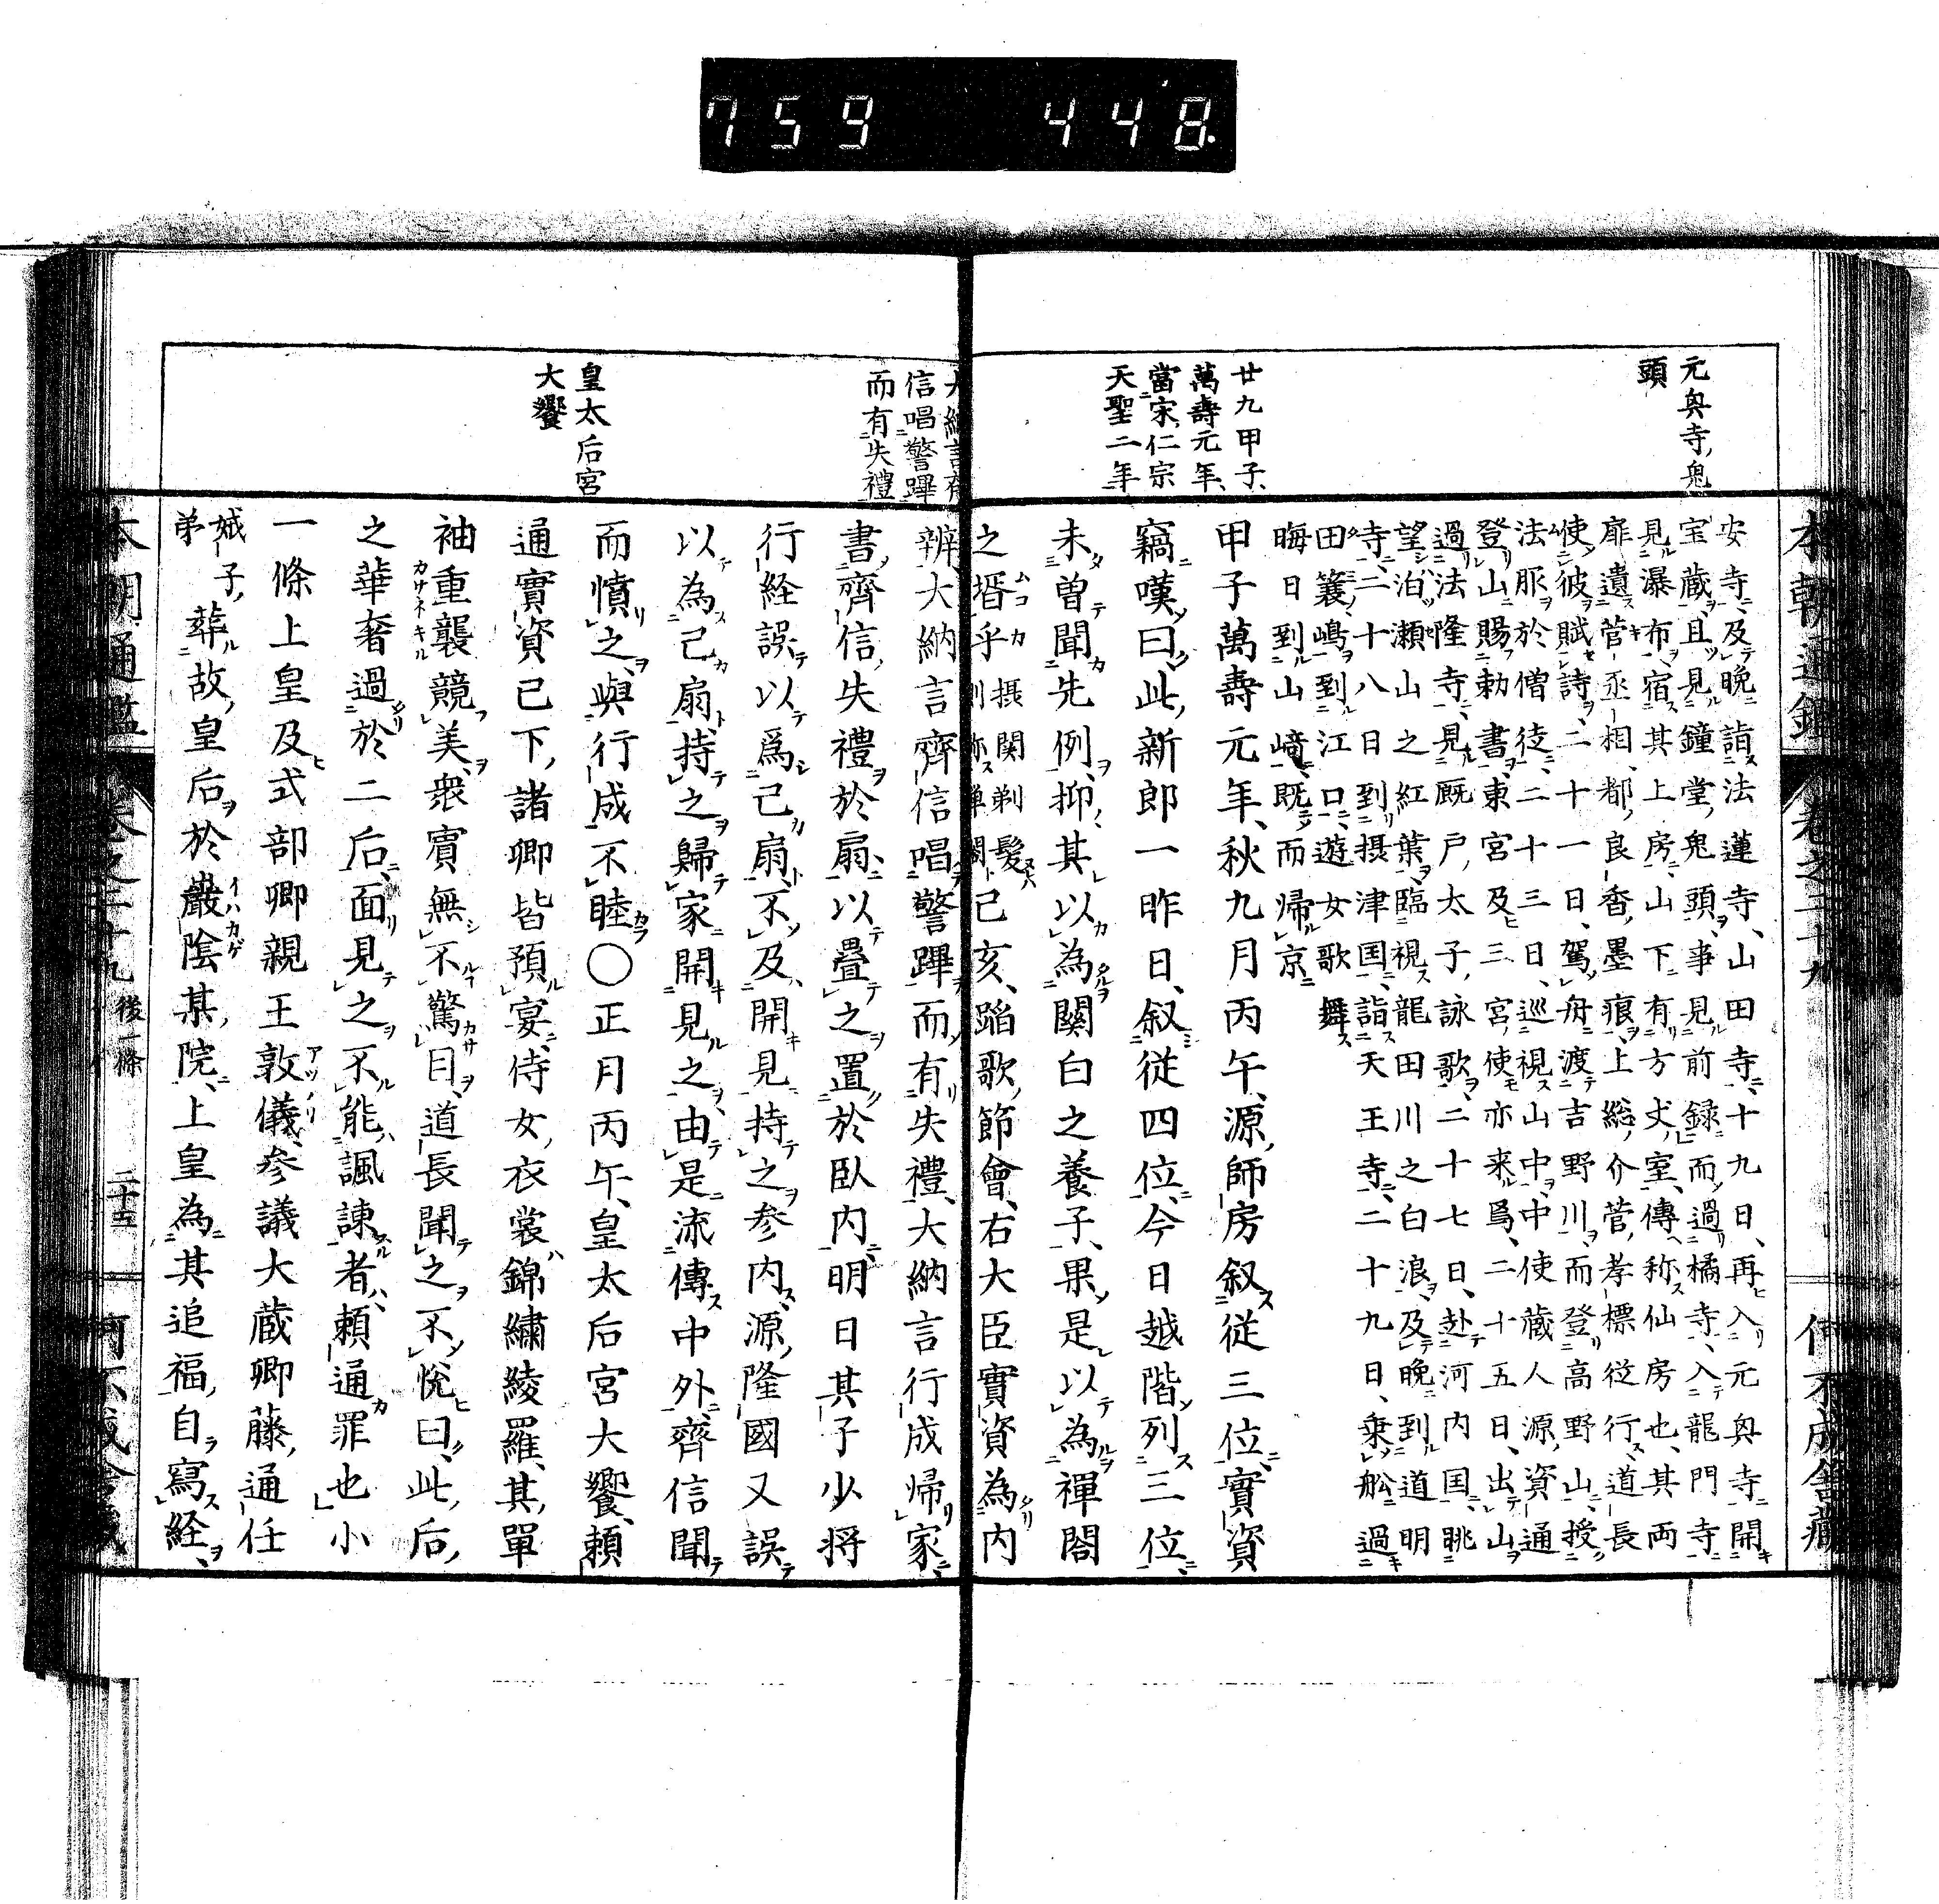 759 448
元奥寺鬼
頭
廿九甲子
萬壽元年
當宋仁宗
天聖二年
本朝通鑑 卷之二十九 何不成舎蔵
安寺及晩詣法蓮寺山田寺十九日再入元奥寺開
宝蔵且見鐘堂鬼頭事見前録而過橘寺入龍門寺
見瀑布宿其上房山下有方丈室傳称仙房也其両
扉遺菅丞相都良香墨痕上総介菅孝標従行道長
使彼賦詩二十一日駕舟渡吉野川而登高野山授
法服於僧徒二十三日巡視山中中使蔵人源資通
登山賜勅書東宮及三宮使亦来焉二十五日出山
過法隆寺見厩戸太子詠歌二十七日赴河内国眺
望泊瀬山之紅葉臨視龍田川之白浪及晩到道明
寺二十八日到摂津国詣天王寺二十九日乗舩過
田簑嶋到江口遊女歌舞
晦日到山﨑既而帰京
甲子萬壽元年秋九月丙午源師房叙従三位實資
竊嘆曰此新郎一昨日叙従四位今日越階列三位
未曽聞先例抑其以為關白之養子果是以為禪閤
之壻乎摂関剃髪則称禅閤己亥蹈歌節會右大臣實資為内
大納言斉
信唱警蹕
而有失禮
皇太后宮
大饗
辨大納言齊信唱警蹕而有失禮大納言行成帰家
書齊信失禮於扇以疊之置於臥内明日其子少将
行経誤以爲己扇不及開見持之参内源隆國又誤
以為己扇持之歸家開見之由是流傳中外齊信聞
而憤之與行成不睦〇正月丙午皇太后宮大饗頼
通實資已下諸卿皆預宴侍女衣裳錦繍綾羅其單
袖重襲競美衆賓無不驚目道長聞之不悦曰此后
之華奢過於二后面見之不能諷諌者頼通罪也小
一條上皇及式部卿親王敦儀参議大蔵卿藤通任
娍子弟葬故皇后於巌陰某院上皇為其追福自寫経
本朝通鑑 卷之二十九 後一條 二十五 何不成舎蔵